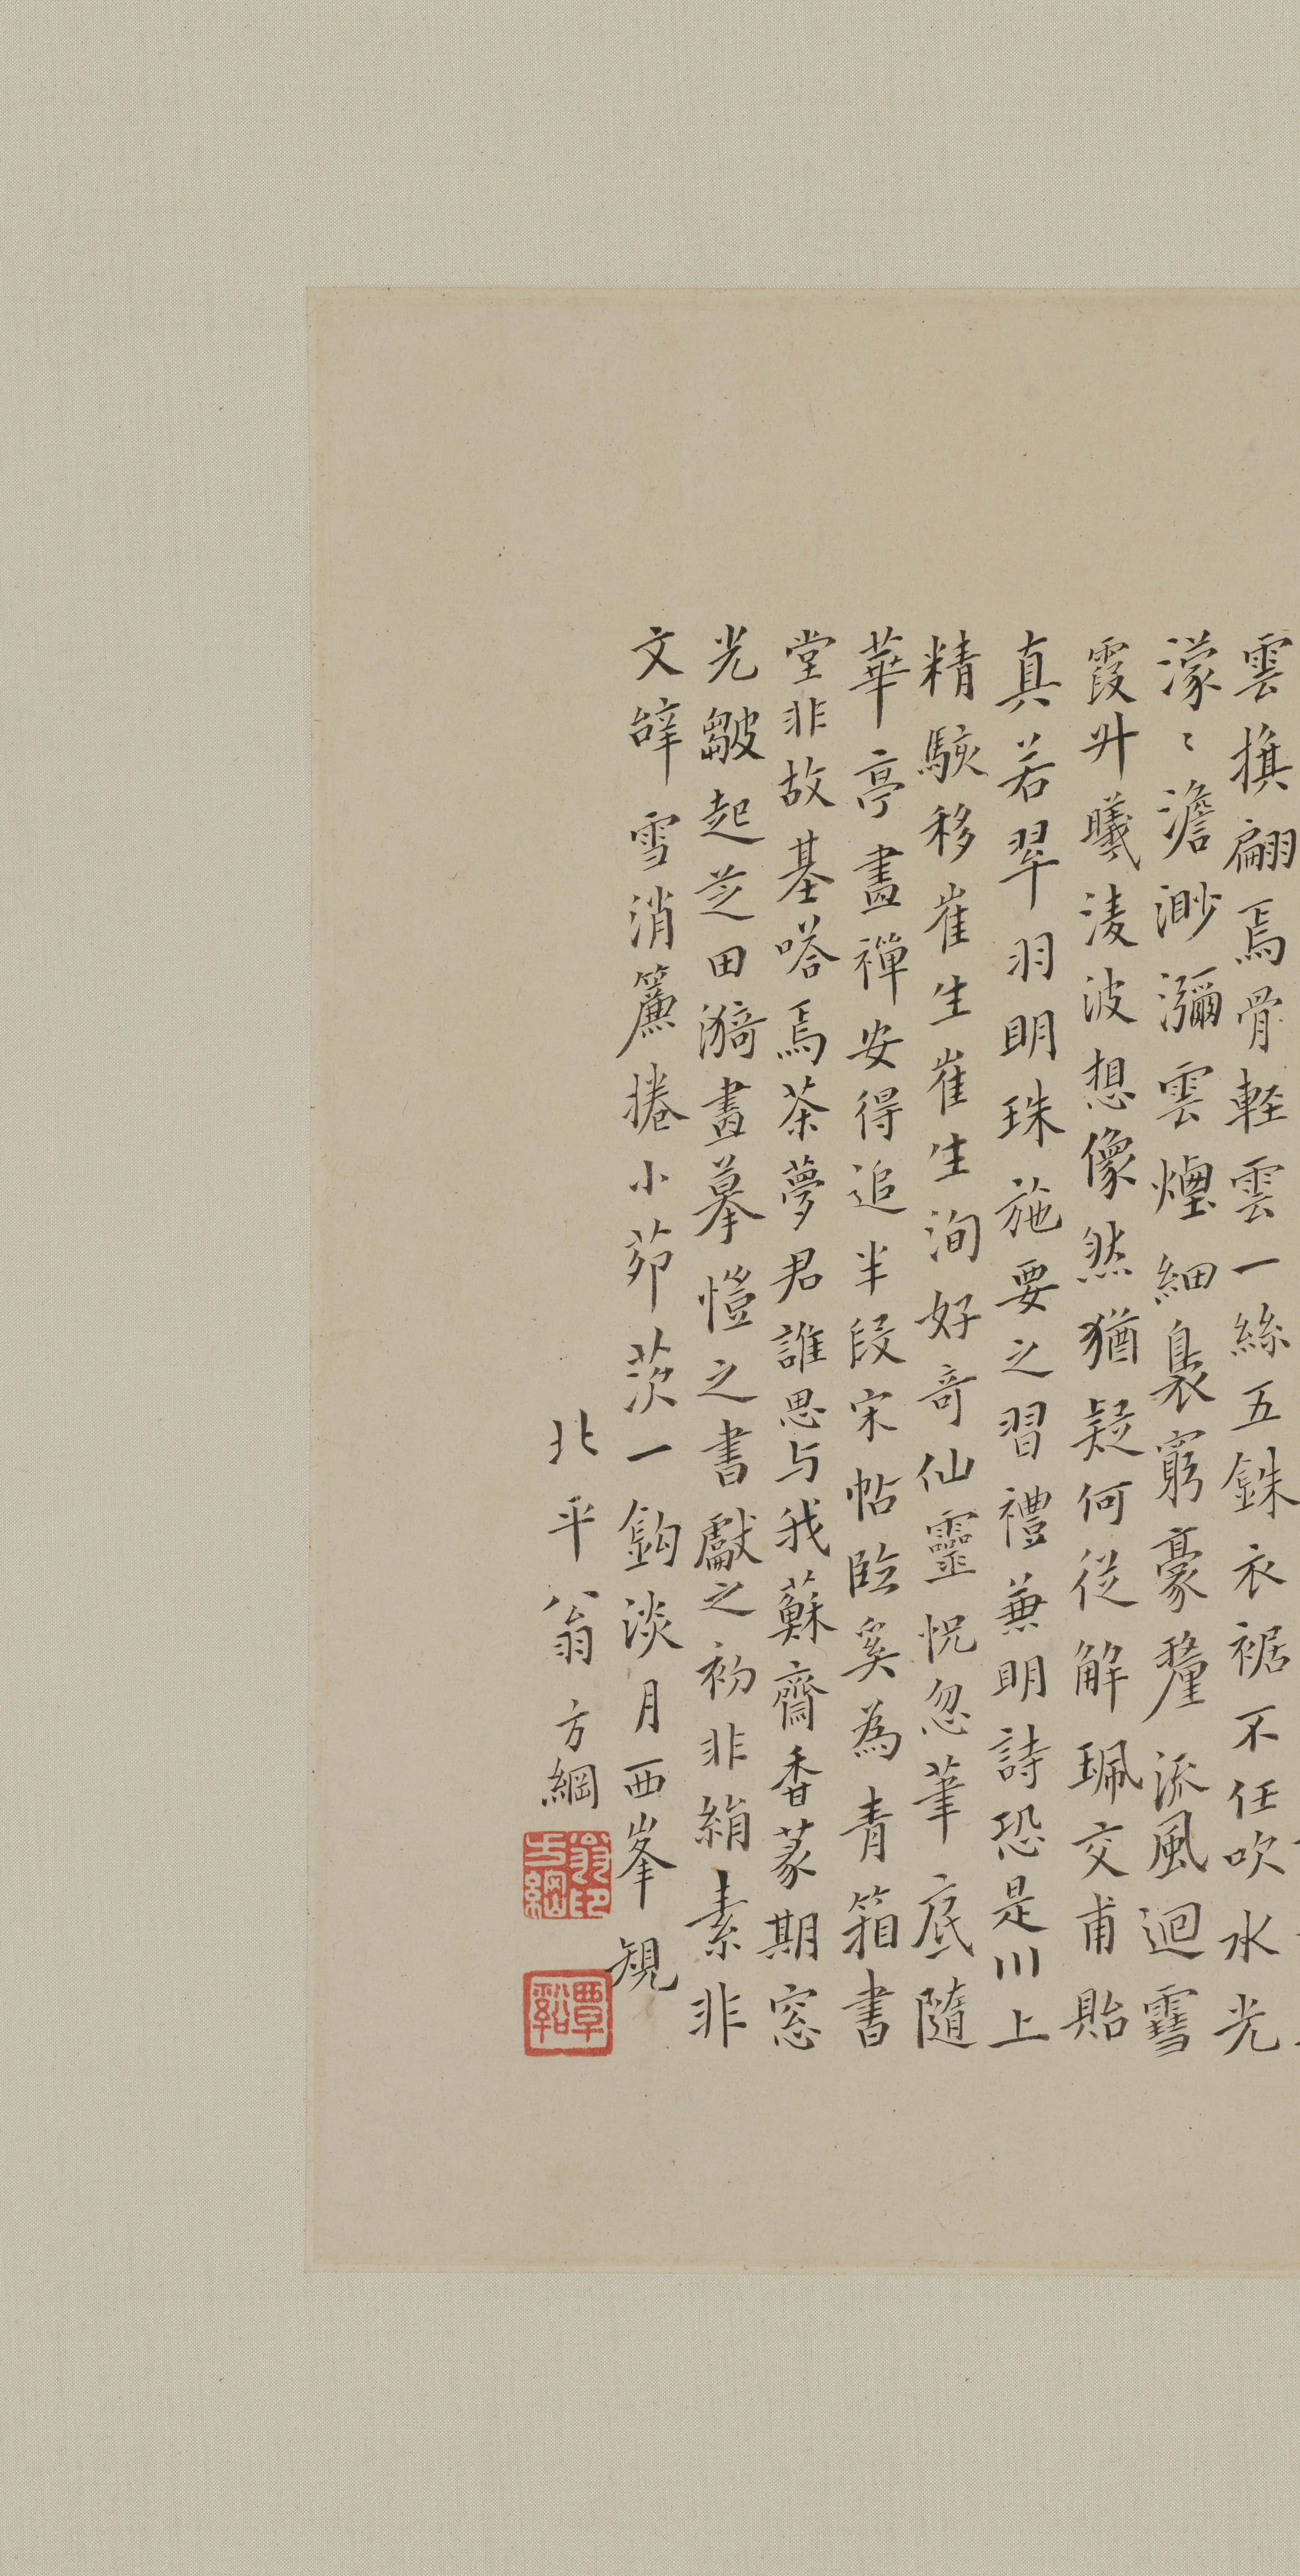 雲旗翩焉骨輕雲一絲五銖衣裾不任吹水光
濛〻澹渺瀰雲煙細裊窮豪釐流風迴雪
霞升曦淩波想像然猶疑何從解珮交甫貽
真若翠羽明珠施要之習禮兼明詩恐是川上
精駭移崔生崔生洵好奇仙靈怳忽筆底隨
華亭畫禪安得追半段宋帖臨奚為青箱書
堂非故基嗒焉茶夢君誰思与我蘇齋香篆期窓
光皺起芝田漪畫摹愷之書獻之初非絹素非
文辭雪消簾捲小茆茨一鉤淡月西峯規
北平翁方綱
翁方綱印
覃谿